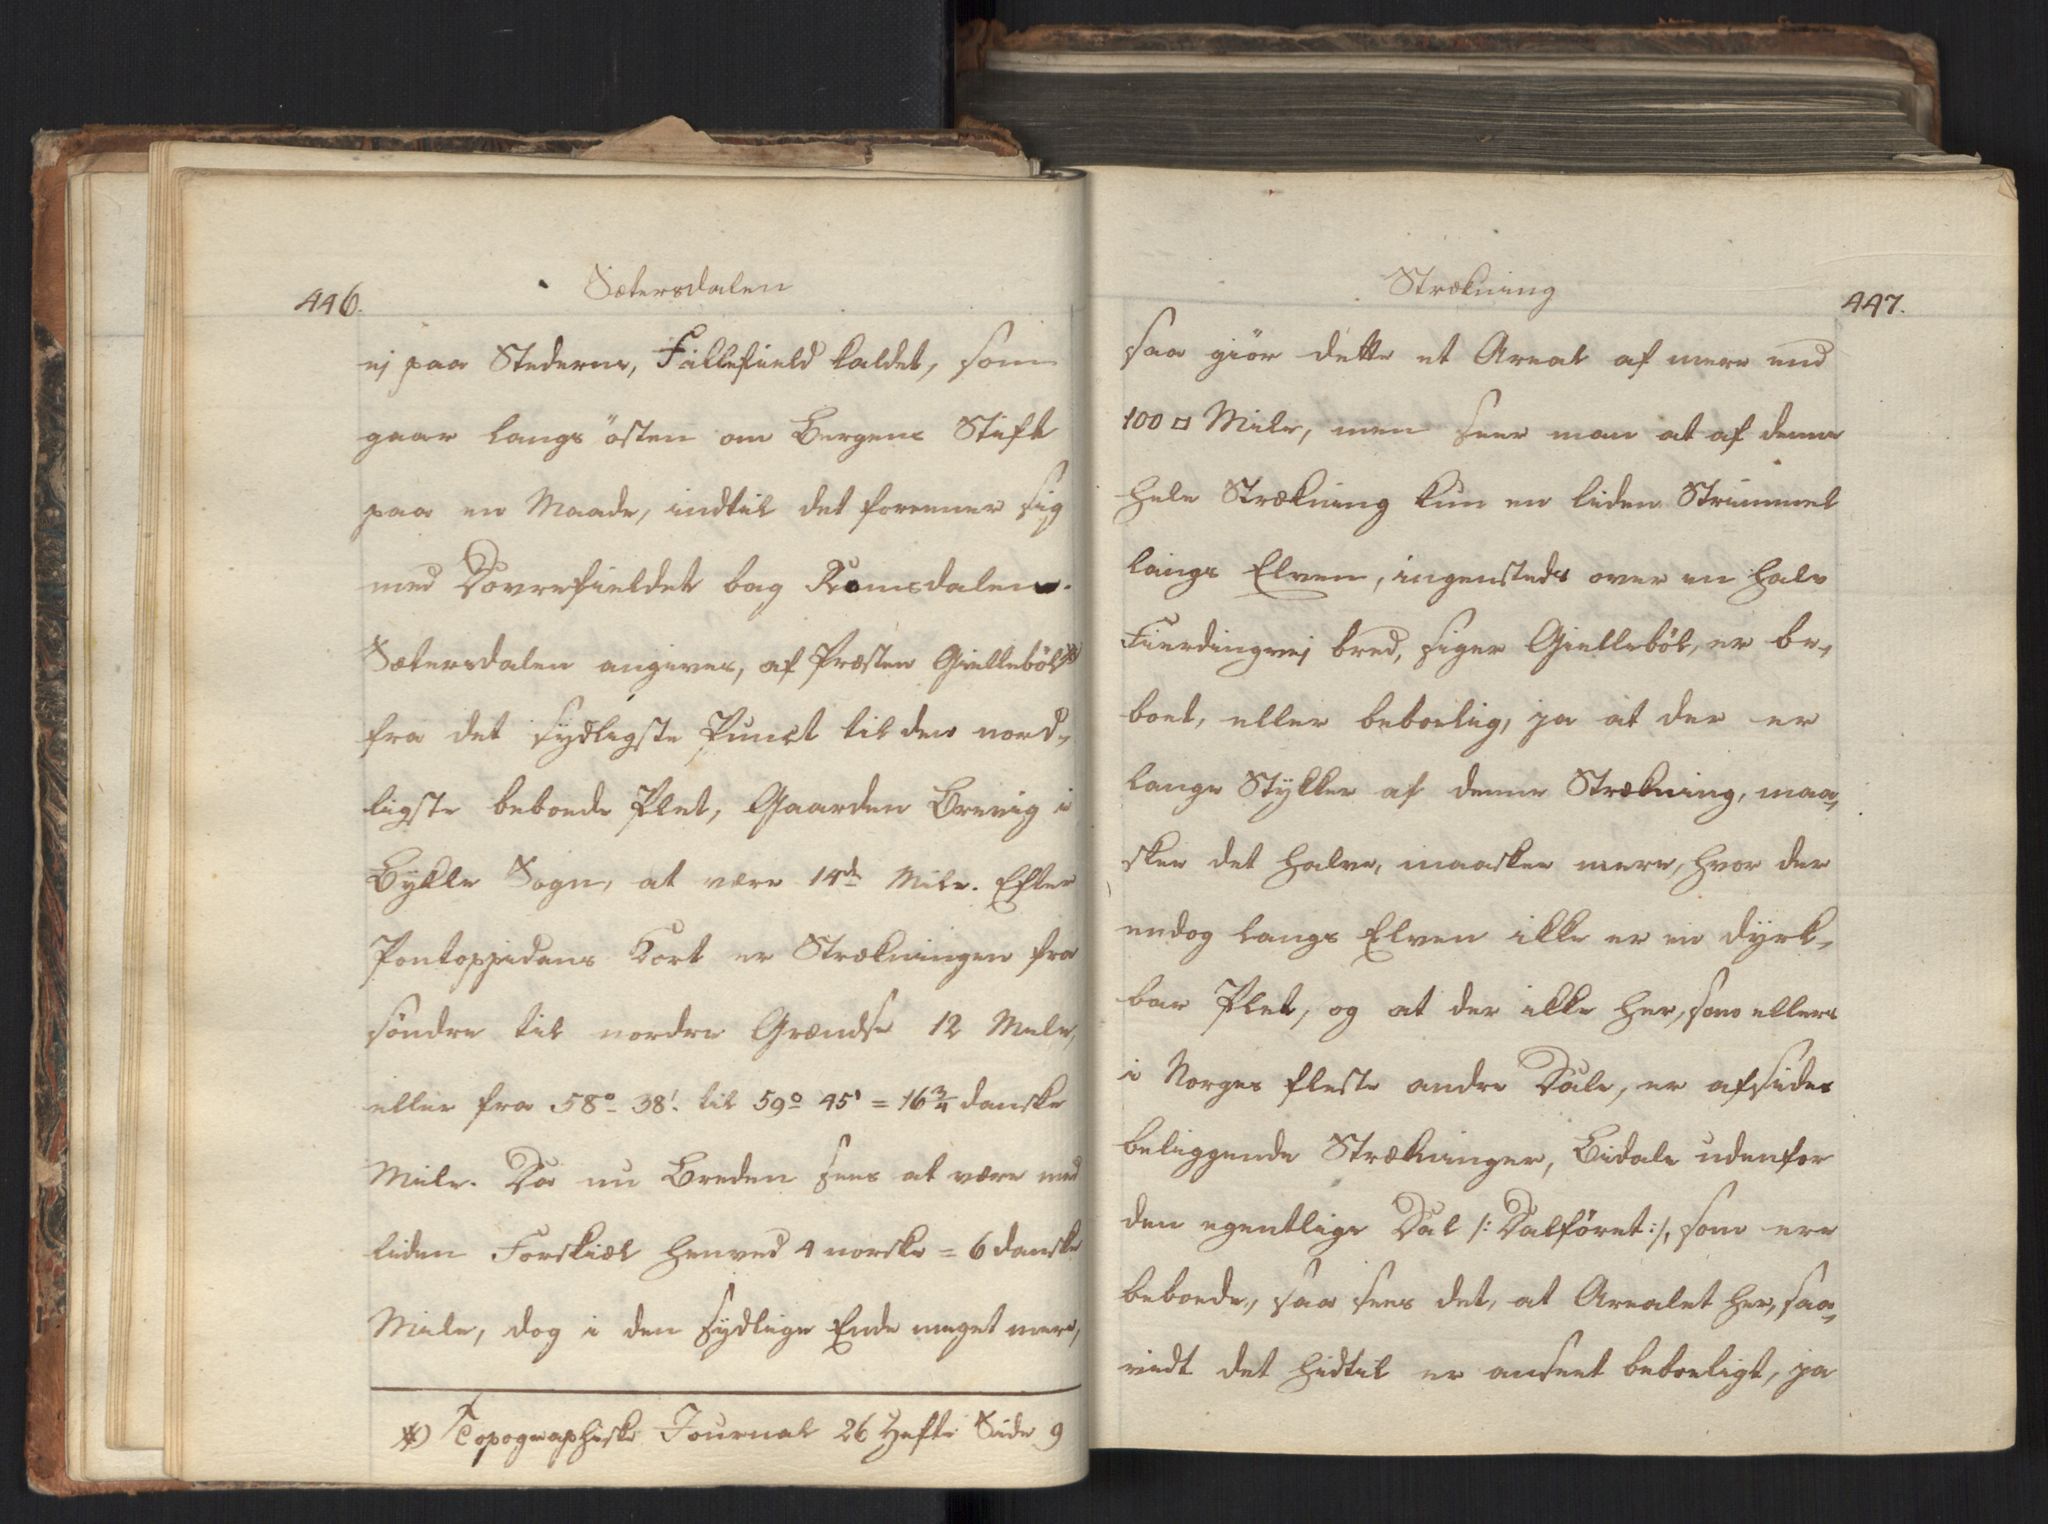 446.
Sætersdalen
ej paa Stederne, Fillefield kaldet, som
gaar langs östen om Bergens Stift
paa en Maade, indtil det forenner sig
med Dovrefieldet bag Romsdalen.
Sætersdalen angives, af Præsten Giellebøl *)
fra det sydligste Punct til den nord-
ligste beboede Plet, Gaarden Brevig i
Bykle Sogn, at være 14de Mile. Efter
Pontoppidans Kort er Strækningen fra
söndre til nordre Grændse 12 Mile,
eller fra 58° 38' til 59° 45' = 16 3/4 danske
Mile. Da nu Breden sees at være med
liden Forskiæl henved 4 norske = 6 danske
Mile, dog i den sydlige Ende meget mere,
*) Topographiske Journal 26 Hefte Side 9
Strækning
447.
saa giör dette et Areal af mere end
100 □ Mile, men seer man at af denne
hele Strækning kun en liden Strimmel
langs Elven, ingensteds over en halv
Fierdingvej bred, siger Giellebøl, er be-
boet, eller beboelig, ja at der er
lange Stÿkker af denne Strækning, maa-
skee det halve, maaskee mere, hvor der
endog langs Elven ikke er en dÿrk-
bar Plet, og at der ikke her, som ellers
i Norges fleste andre Dale, er afsides
beliggende Strækninger, Bidale udenfor
den egentlige Dal /: Dalföret :/, som ere
beboede, saa sees det, at Arealet her, saa-
vidt det hidtil er anseet beboeligt, ja